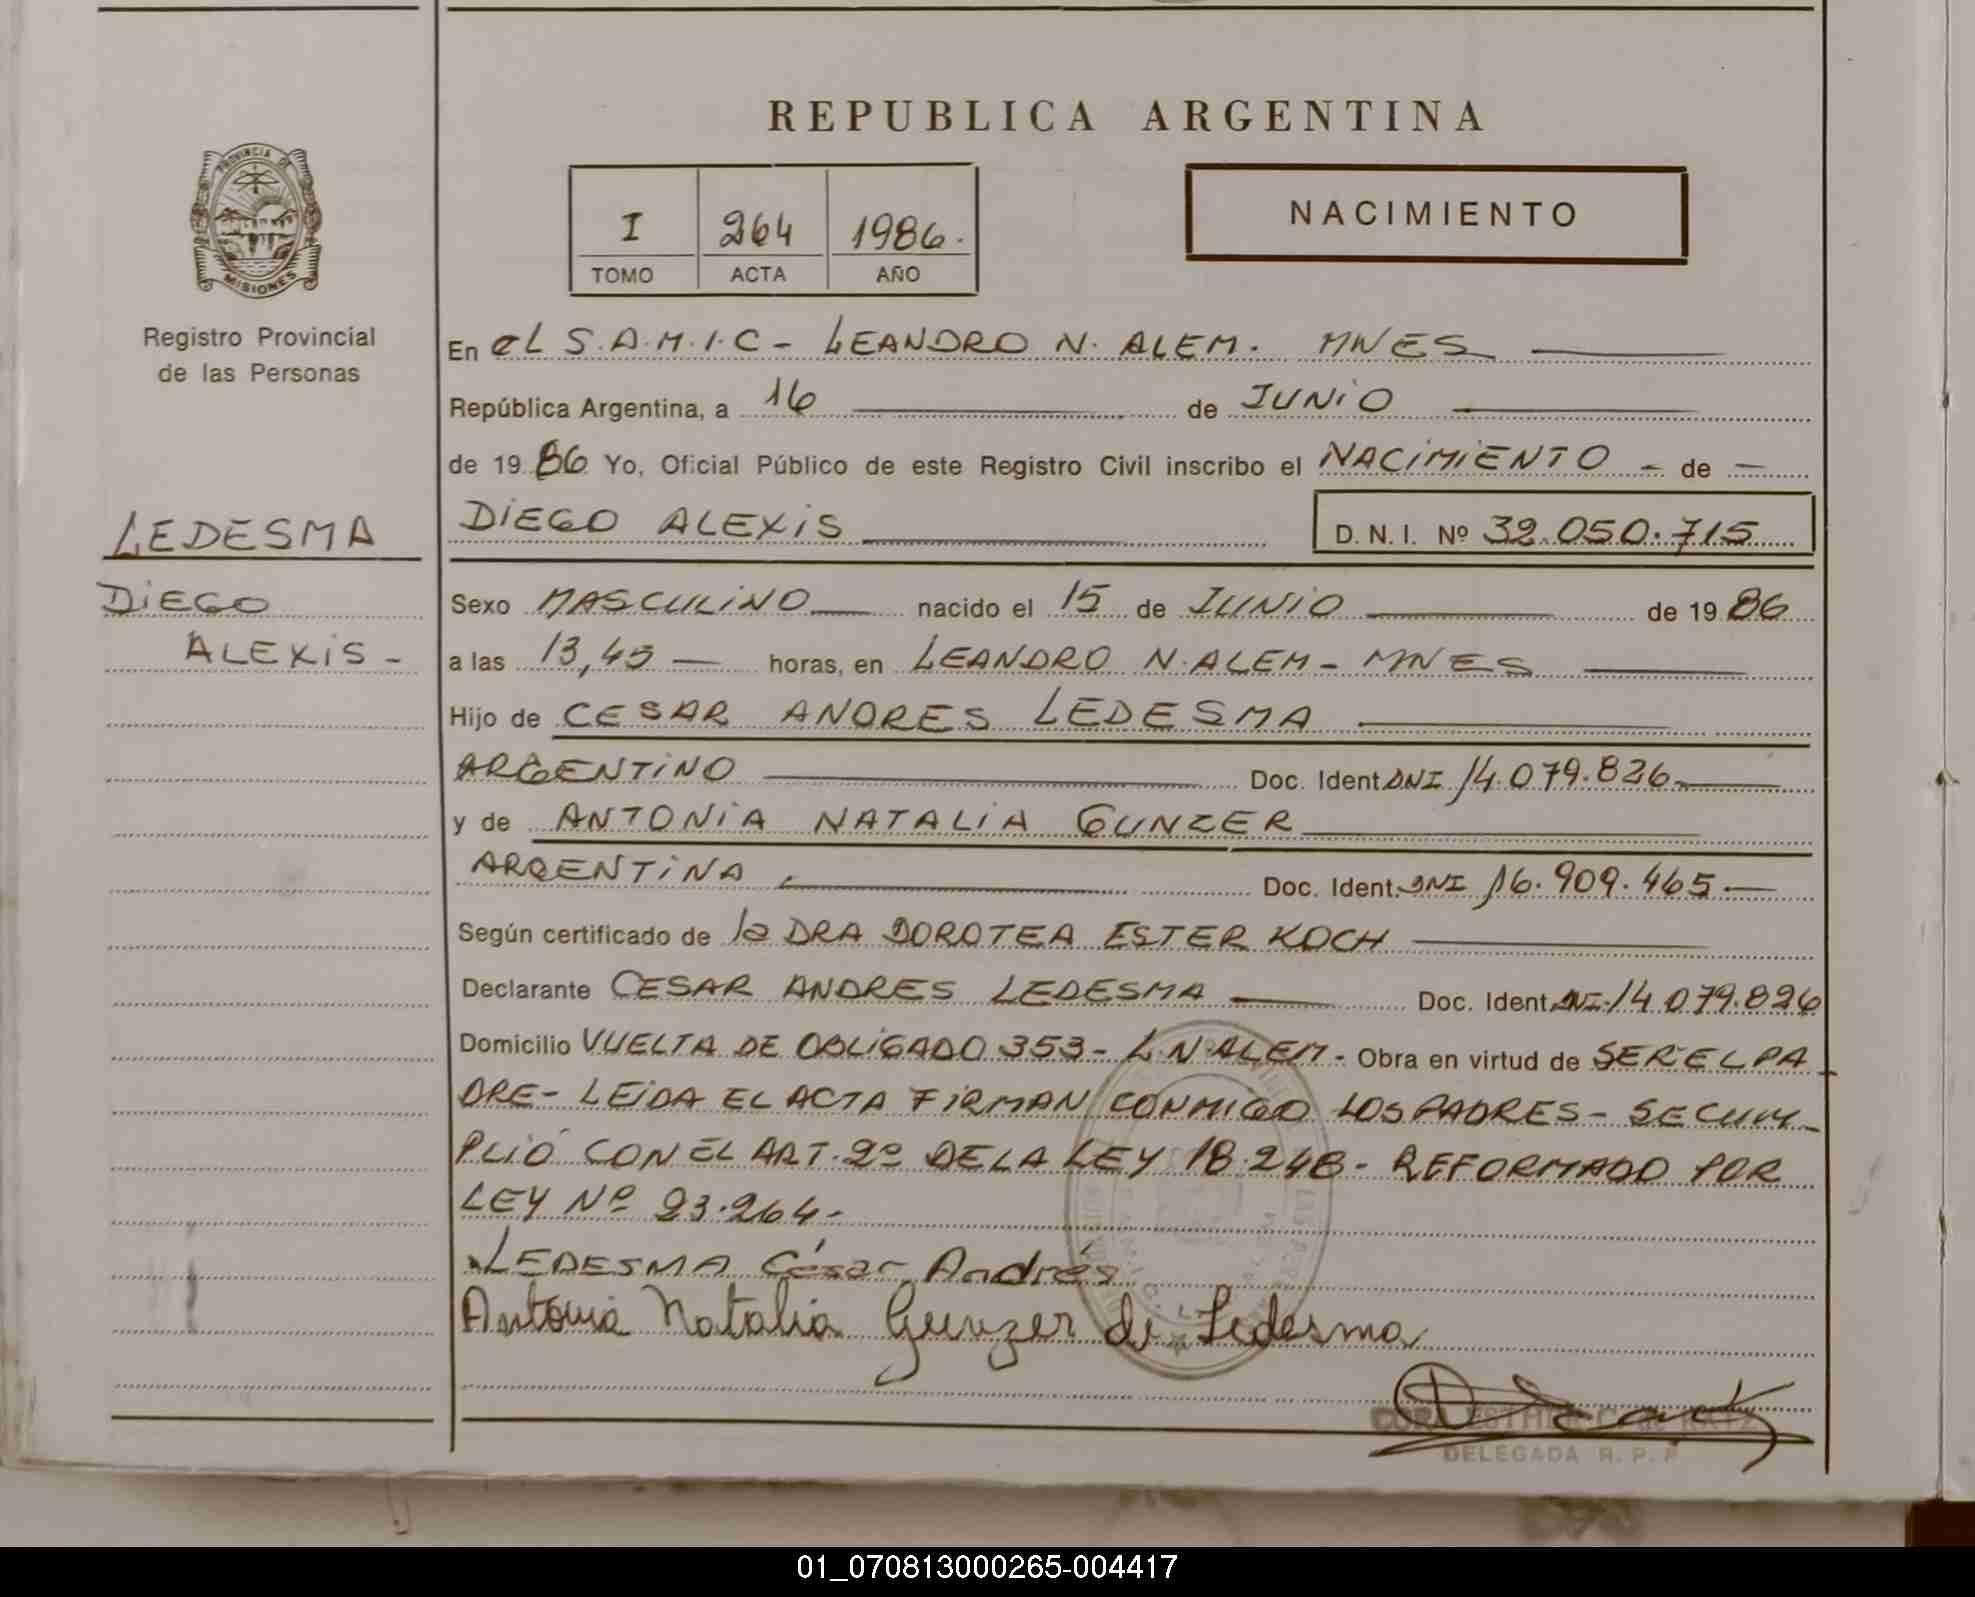 REPUBLICA ARGENTINA
PROVINCIA DE
MISIONES
I 264 1986.
TOMO ACTA AÑO
NACIMIENTO
Registro Provincial
de las Personas
En el S.A.M.I.C - LEANDRO N. ALEM. MNES
República Argentina, a 16 de JUNIO
de 19 86 Yo, Oficial Público de este Registro Civil inscribo el NACIMIENTO - de -
LEDESMA
DIEGO ALEXIS
D. N. I. Nº 32.050.715
DIEGO
ALEXIS -
Sexo MASCULINO nacido el 15 de JUNIO de 19 86
a las 13,45 horas, en LEANDRO N. ALEM - MNES
Hijo de CESAR ANDRES LEDESMA
ARGENTINO Doc. Ident. DNI 14.079.826
y de ANTONIA NATALIA GUNZER
ARGENTINA Doc. Ident. DNI 16.909.465
Según certificado de la DRA DOROTEA ESTER KOCH
Declarante CESAR ANDRES LEDESMA Doc. Ident. DNI. 14.079.826
Domicilio VUELTA DE OBLIGADO 353 - L.N. ALEM - Obra en virtud de SER EL PA
DRE - LEIDA EL ACTA FIRMAN CONMIGO LOS PADRES - SE CUM-
PLIÓ CON EL ART. 2º DE LA LEY 18.248 - REFORMADO POR
LEY Nº 23.264 -
LEDESMA César Andrés
Antonia Natalia Gunzer de Ledesma
DELEGADA R. P. P
01_070813000265-004417